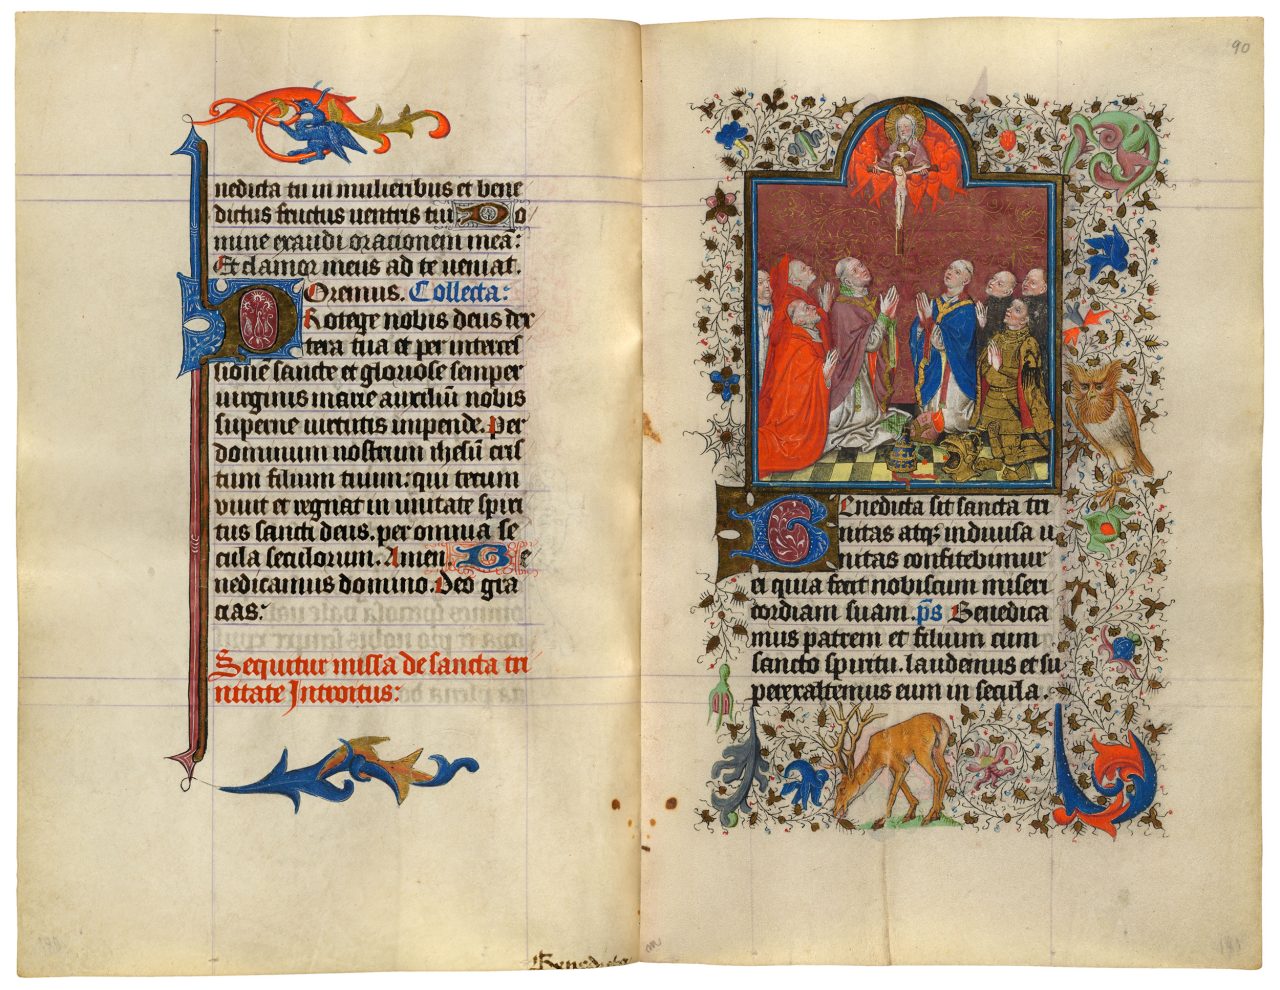 nedicta tu in mulieribus et bene
dictus fructus uentris tui Do
mine exaudi orationem meā:
Et clamor meus ad te ueniat.
Oremus. Collecta:
Rotege nobis deus dex
tera tua et per interces
sionē sancte et gloriose semper
uirginis marie auxiliū nobis
superne uirtutis impende. Per
dominum nostrum ihesū cris
tum filium tuum: qui tecum
uiuit et regnat in unitate spiri
tus sancti deus. per omnia se
cula seculorum. Amen. Be
nedicamus domino. Deo gra
cias:
Sequitur missa de sancta tri
nitate Introitus:
Benedicta
90
Benedicta sit sancta tri
nitas atqꝫ indiuisa u
nitas confitebimur
ei quia fecit nobiscum miseri
cordiam suam. p̄s Benedica
mus patrem et filium cum
sancto spiritu. laudemus et su
perexaltemus eum in secula.